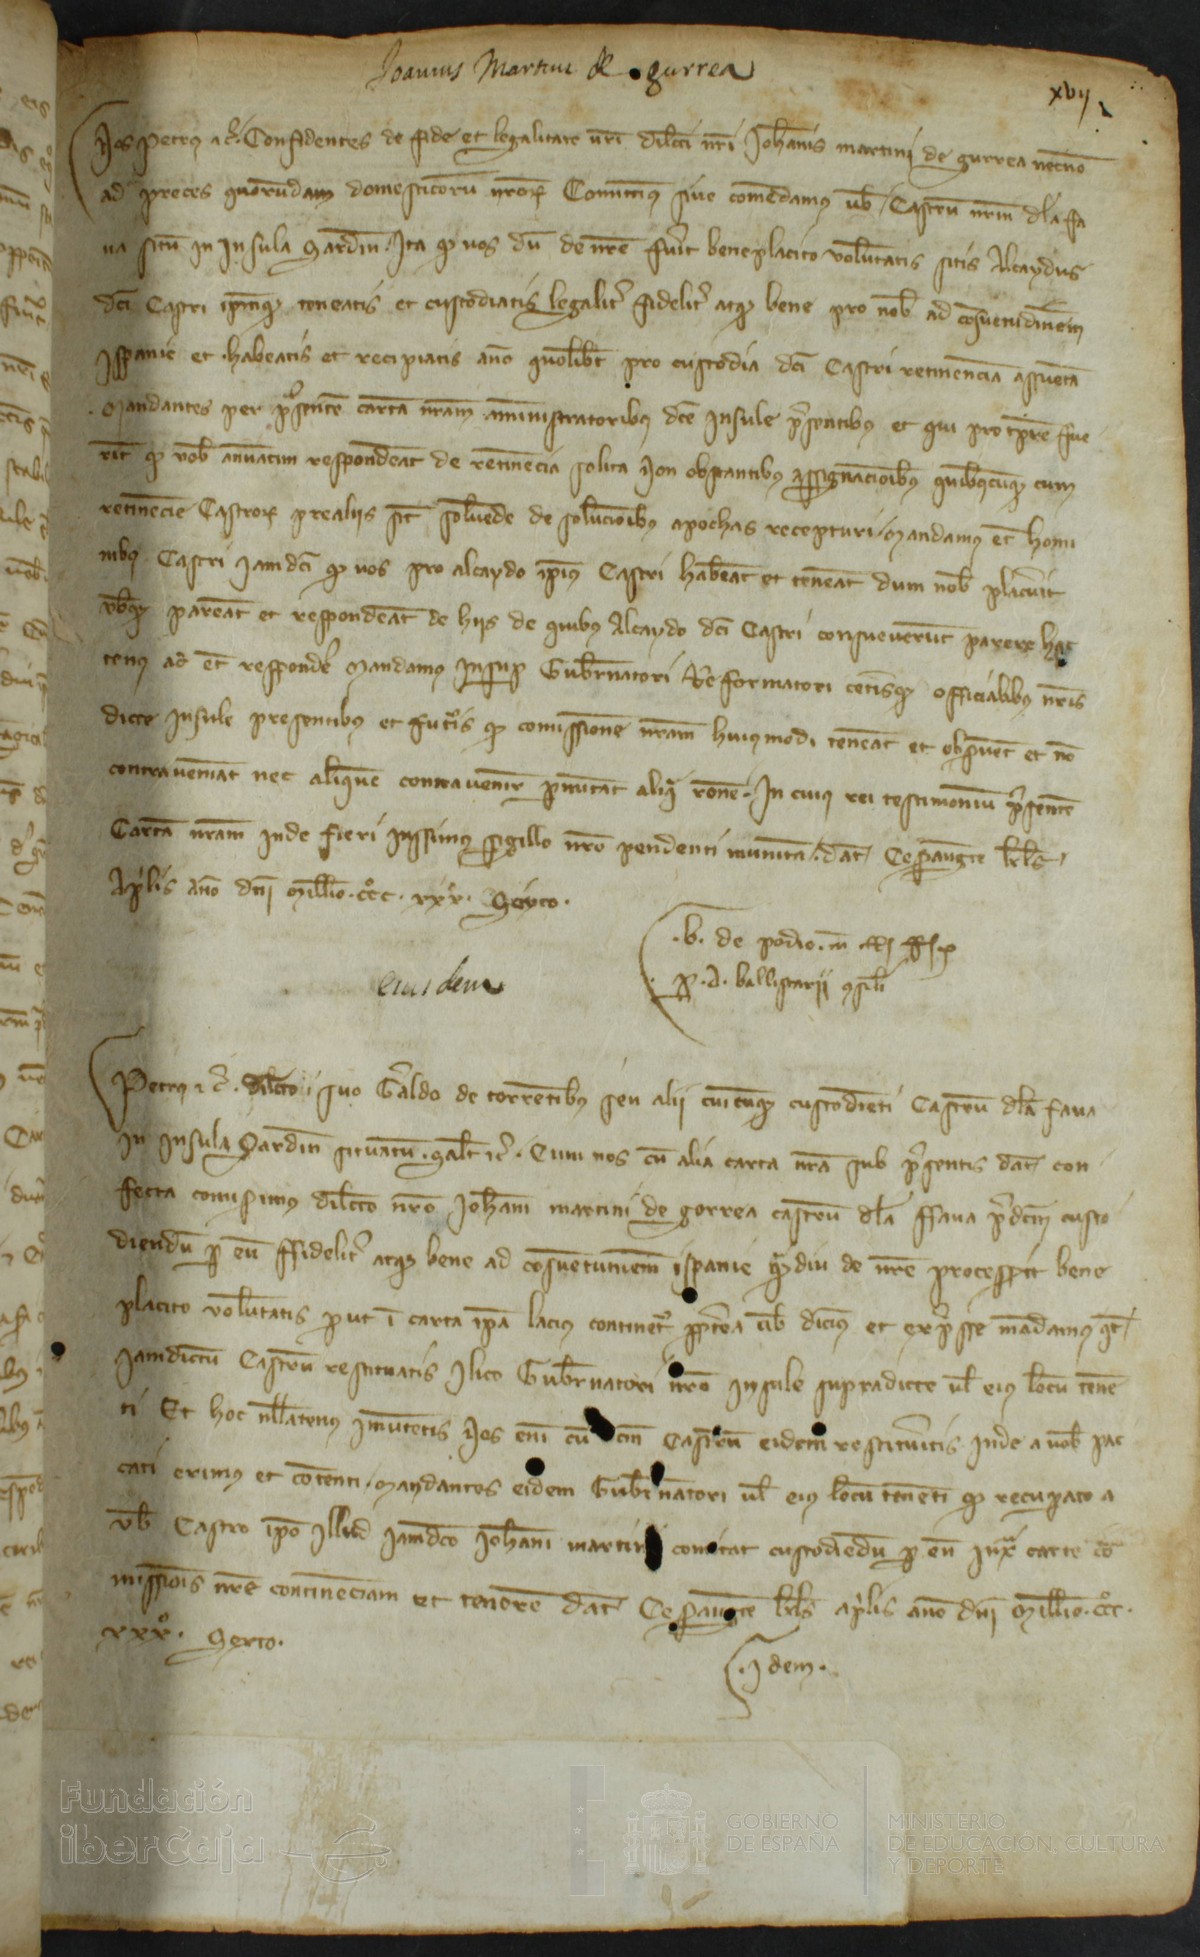 Joannis Martini de gurrea
xvij
Nos Petrus etc. Confidentes de fide et legalitate vri dilecti nri Johanis martini de gurrea necno
ad preces quorundam domesticoru nrorum Comittimus sive comedamus vob Castru nrm dla fa
va situ in insula Sardin Ita quod vos du de nre fuit beneplacito voluntatis sitis Alcaydus
dci Castri ipmque teneatis et custodiatis legalit fidelit atque bene pro nob ad cosuetudinem
Ispanie et habeatis et recipiatis ano quolibet pro custodia dci Castri retinencia assueta
Mandantes per psente carta nram aministratoribus dce Insule psentibus et qui pro tpre fue
rit quod vob annuatim respondeat de retinecia solita Non obstantibus assignacioibus quibuscuque cum
retinecie Castrorum prealiis sit solvede de solucioibus apochas recepturi Mandamus et homi
nibus Castri jamdci quod vos pro alcaydo ipius Castri habeat et teneat dum nob placuit
vobque pareat et respondeat de hiis de quibus Alcaydo dci Castri consueverunt parere hac
tenus ac et responde Mandamus Insup Gubnatori Reformatori cetisque officialibus nris
dicte Insule presentibus et futis quod comissione nram huiusmodi teneat et obsvent et no
contraveniat nec aliquem contravenire pmittat aliqua rone. In cuius rei testimoniu psente
Carta nram inde fieri iussimus sigillo nro pendenti munita. dat Cesarauguste kls
Aplis Ano dni Millio. ccc. xxx. Sexto.
.b. de podio.
p. A. ballistarii
eiusdem
Petrus etc. dilecto suo Galdo de torretibus seu alii cuicuque custodieti Castru dla fava
in insula Sardin situatu. salt etc. Cum nos cu alia carta nra sub psentis dat con
fecta comisimus dilecto nro Johani martini de gorrea castru dla ffava pdcm custo
diendu p eu ffidelit atque bene ad cosuetuniem ispanie qdiu de nre processit bene
placito voluntatis put i carta ipa lacius continet pptea vob dicimus et expsse madamus qt
jamdictu Castru restituatis Ilico Gubnatori nro insule supradicte vl eius locu tene
ti Et hoc nullatenus imutetis Nos eni cu dcm Castru eidem restitueitis inde a vob pac
cati erimus et cotenti Mandantes eidem Gubnatori vl eius locu teneti quod recupato a
vob Castro ipo illud jamdco Johani martini comitat custodiedu p eu iuxta carte co
missiois nre contineciam et tenore dat Cesarauguste kls aplis ano dni Millio. ccc.
xxx. Sexto.
Idem.
Fundación
iberCaja
GOBIERNO
DE ESPAÑA
MINISTERIO
DE EDUCACIÓN, CULTURA
Y DEPORTE